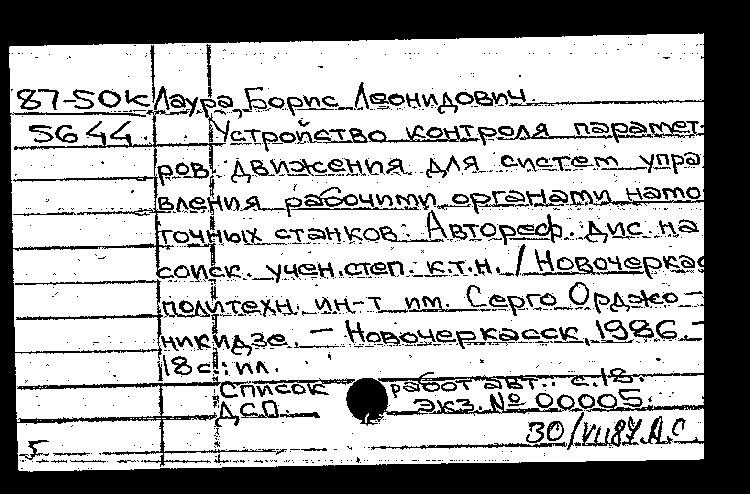 87-50К Лаура, Борис Леонидович.
5644. Устройство контроля парамет-
ров движения для систем упра
вления рабочими органами намо
точных станков: Автореф. дис. на
соиск. учен. степ. к.т.н. / Новочеркас
политехн. ин-т им. Серго Орджо-
никидзе. — Новочеркасск, 1986. -
18 с.: ил.
Список работ авт.: с.18.
Д.С.П. Экз. № 00005.
30/VII87.А.С.
5